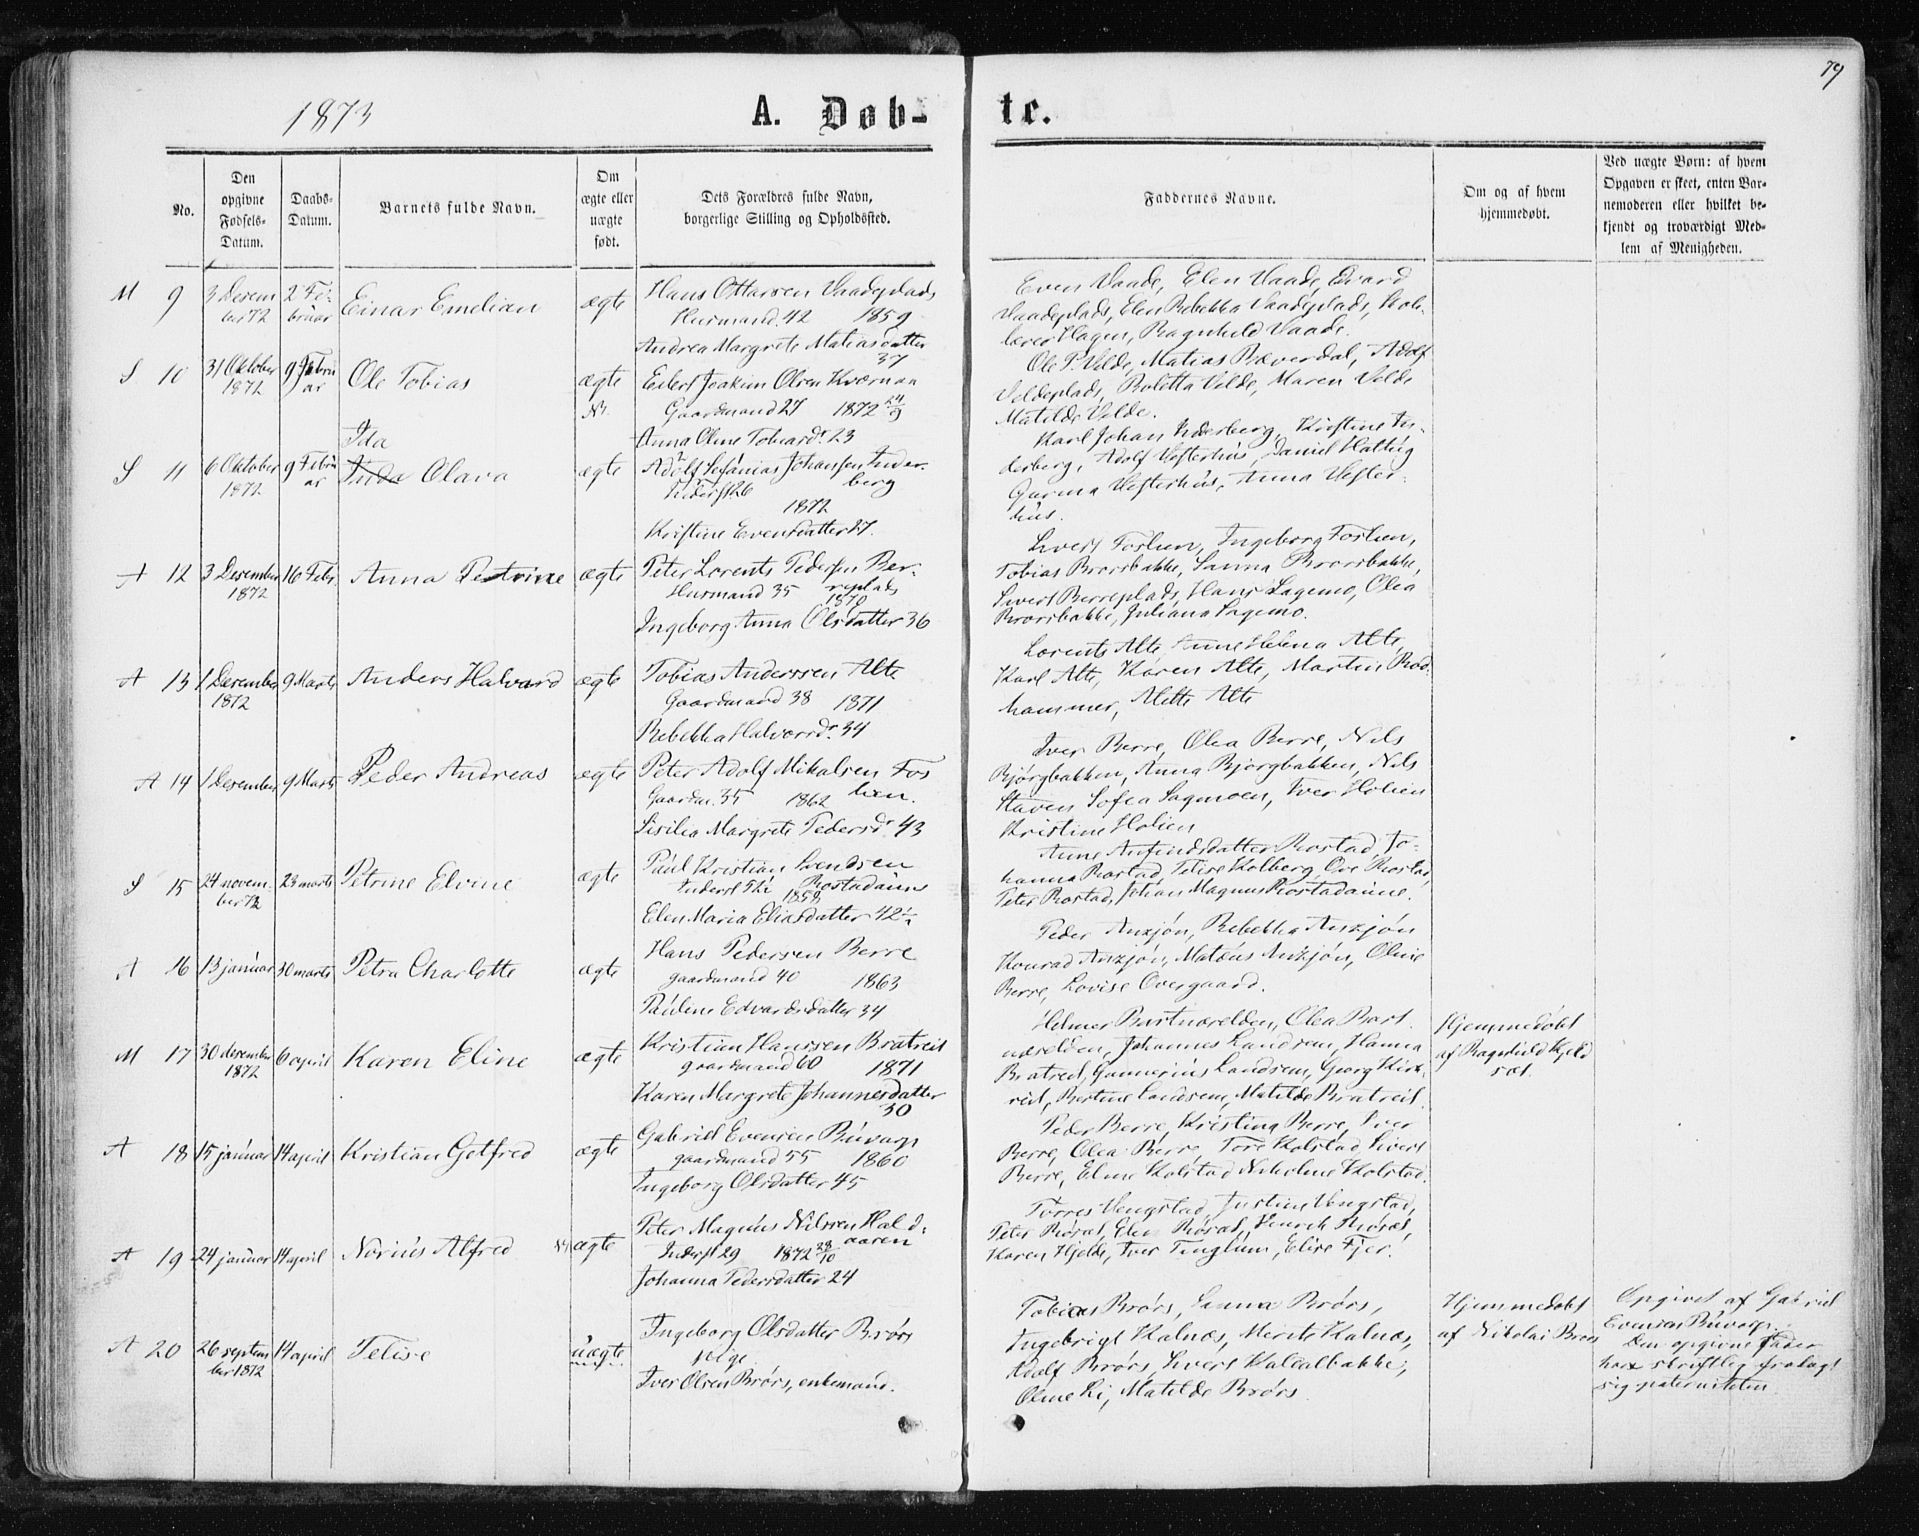 79
1873
A. Døb-
te.
No.
Den
opgivne
Fødsels-
Datum.
Daabs-
Datum.
Barnets fulde Navn.
Om
ægte eller
uægte
født.
Dets Forældres fulde Navn,
borgerlige Stilling og Opholdssted.
Faddernes Navne.
Om og af hvem
hjemmedøbt.
Ved uægte Børn: af hvem
Opgaven er skeet, enten Bar-
nemoderen eller hvilket be-
kjendt og troværdigt Med-
lem af Menigheden.
M 9
3 Desem
ber 72
2 Fe-
bruar
Einar Emelian
ægte
Hans Ottarsen Vaadeplads
Husmand. 42 1859
Andrea Margrete Matiasdatter
37
Even Vaade, Elen Vaade, Edvard
Vaadeplads, Elen Rebekka Vaadeplads, Sko-
lærer Hagen, Ragnhild Vaade.
S 10
31 Oktober
1872
9 Febru
ar
Ole Tobias
ægte
Eilert Joakim Olsen Kværnaa
Gaardmand 27 1872 24/9
Anna Oline Tobiasd. 23
Ole P. Velde, Matias Bæverdal, Adolf
Veldeplads, Boletta Velde, Maren Velde
Matilde Velde.
S 11
6 Oktober
1872
9 Febru
ar
Ida
Olava
ægte
Adolf Sefanias Johansen Inder-
berg
Inderst 26
1872
Kristine Evensdatter 27.
Karl Johan Inderberg, Kristine In-
derberg, Adolf Vesterhus, Daniel Hattvig
Gurina Vesterhus, Anna Vester-
hus.
A 12
3 Desember
1872
16 Febr.
Anna Petrine
ægte
Peter Lorents Pedersen Ber-
replads
Husmand 35
1870
Ingeborg Anna Olsdatter 36
Sivert Foslien, Ingeborg Foslien,
Tobias Brorsbakke, Sanna Brorsbakke,
Sivert Berreplads, Hans Sagemo, Olea
Brorsbakke, Juliana Sagemo.
A 13
1 Desember
1872
9 Marts
Anders Halvard
ægte
Tobias Anderssen Alte
Gaardmand 38 1871
Rebekka Halvorsd. 34
Lorents Alte, Anne Helena Alte,
Karl Alte, Karen Alte, Martin Rød-
hammer, Mette Alte
A 14
1 Desember
9 Marts
Peder Andreas
ægte
Peter Adolf Mikalsen Fos
lien.
Gaardm. 35 1862
Sisilia Margrete Pedersd. 43
Iver Berre, Olea Berre, Nils
Bjørgbakken, Anna Bjørgbakken, Nils
Staven Sofia Sagmoen, Iver Holien
Kristine Holien
S 15
24 novem-
ber 72
23 marts
Petrine Elvine
ægte
Paul Kristian Svendsen
Rostadaune
1858
Elen Maria Eliasdatter 42½
Anne Arfindsdatter Rostad, Jo-
hanna Rostad, Telise Kolberg, Ove Rostad,
Peter Rostad, Johan Magnus Rostadaune.
A 16
13 januar
30 marts
Petra Charlotte
ægte
Hans Pedersen Berre
gaardmand 40 1863
Pauline Edvardsdatter 34
Peder Auxjøn, Rebekka Auxjøn
Konrad Auxjøn, Matæus Auxjøn, Oline
Berre, Lovise Overgaard.
M 17
30 desember
1872
6 april
Karen Eline
ægte
Kristian Hanssen Bratreit
gaardmand 60 1871
Karen Margrete Johannesdatter
30
Helmer Bartnæselden, Olea Bart-
næselden, Johannes Landsem, Hanna
Bratreit, Gunnerius Landsem, Georg Kirk-
reit, Bertine Landsem, Matilde Bratreit.
Hjemmedøbt
af Ragnhild Kjeld
sæt.
A 18
15 januar
14 april
Kristian Gotfred
ægte
Gabriel Evensen Buvarp
gaardmand 55 1860
Ingeborg Olsdatter 45
Peder Berre, Kristina Berre, Iver
Berre, Olea Berre, Tore Kolstad, Sivert
Berre, Eline Kolstad, Nikoline Kolstad.
A 19
24 januar
14 april
Norius Alfred
ægte
Peter Magnus Nilssen Hald-
aaren
Inderst 29 1872 28/10
Johanna Pedersdatter 24
Torres Vengstad, Justine Vengstad,
Peter Røsæt, Elen Røsæt, Henrik Røsæt,
Karen Hjelde, Iver Tinglum, Elise Fjer.
A 20
26 septem
ber 1872
14 april
Telise
uægte
Ingeborg Olsdatter Brørs
pige
Iver Olsen Brørs, enkemand.
Tobias Brørs, Sanna Brørs,
Ingebrigt Kalnæs, Merete Kalnæs,
Adolf Brørs, Sivert Kalealbakke,
Oline Li, Matilde Brørs.
Hjemmedøbt
af Nikolai Brørs
Opgivet af Gabriel
Evensen Buvarp.
Den opgivne Fader
har skriftlig fralagt
sig paterniteten